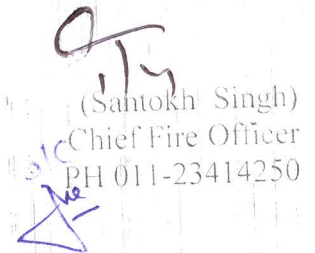 (Santokh Singh)
Chief Fire Officer
PH 011-23414250